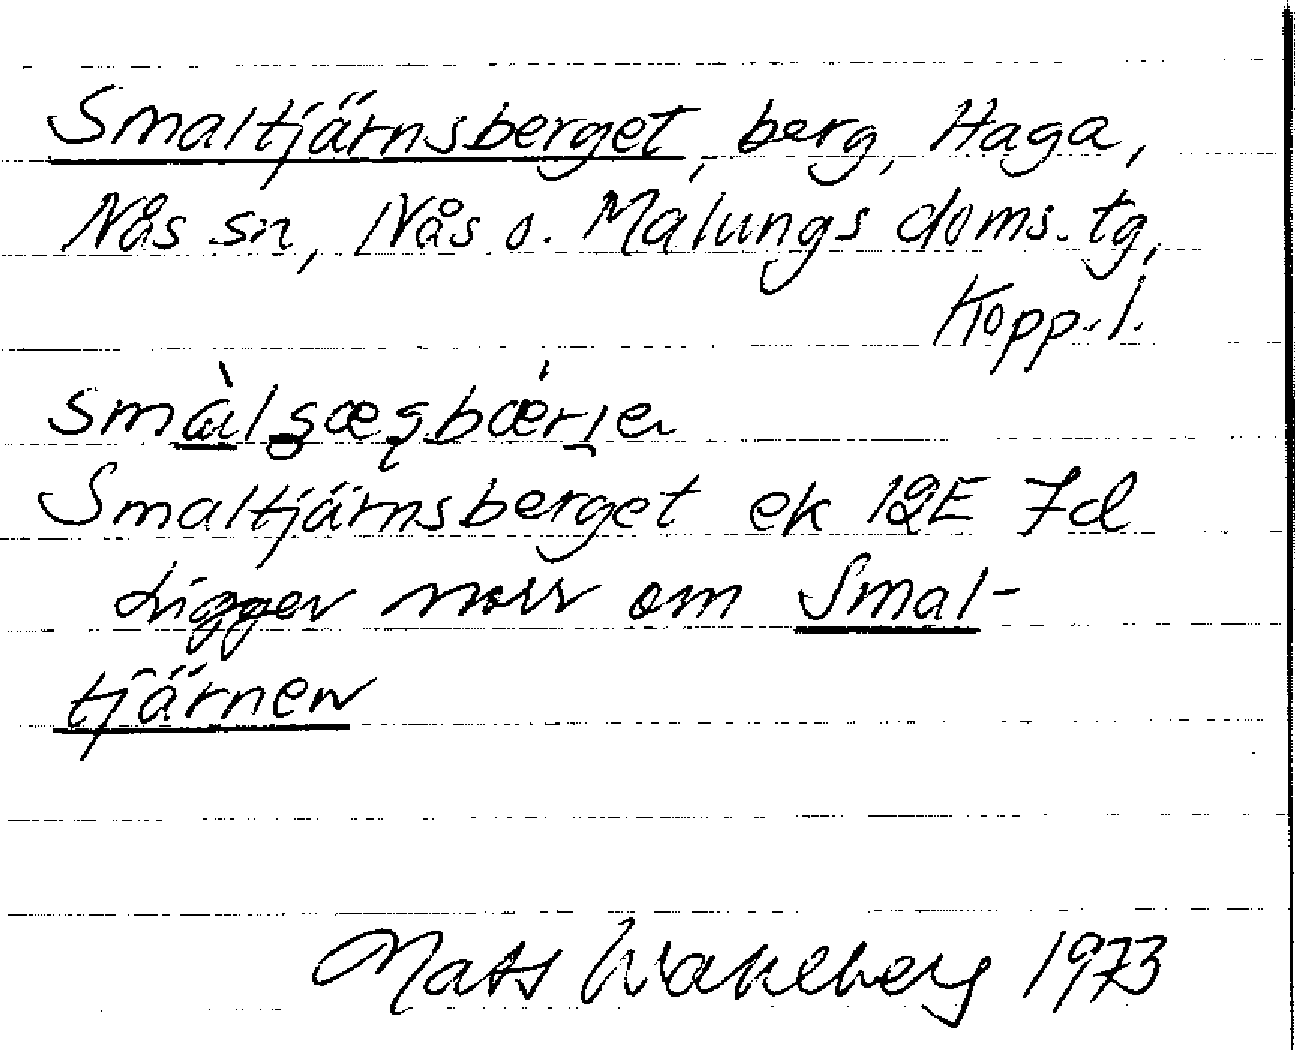 Smaltjärnsberget, berg, Haga,
Nås sn, Nås o. Malungs doms. tg,
Kopp. l.
Smaltjärnsberget ek 12E 7d
Ligger norr om Smal-
tjärnen
Mats Wahlberg 1973